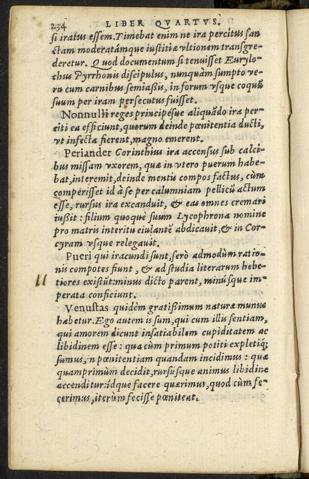 234 LIBER QVARTVS.
si iratus essem. Timebat enim ne ira percitus san
ctam moderatámque iustitiæ vltionem transgre-
deretur. Quod documentum si tenuisset Eurylo-
chus Pyrrhonis discipulus, nunquàm sumpto ve-
ru cum carnibus semiassis, in forum vsque coquū
suum per iram persecutus fuisset.
Nonnulli reges principésue aliquādo ira per-
citi ea efficiunt, quorum deinde pœnitentia ducti,
vt infecta fierent, magno emerent.
Periander Corinthius ira accensus sub calci-
bus missam vxorem, quæ in vtero puerum habe-
bat, interemit, deinde mentis compos factus, cùm
comperisset id à se per calumniam pellicū actum
esse, rursus ira excanduit, & eas omnes cremari
iußit: filium quoquè suum Lycophrona nomine
pro matris interitu eiulantē abdicauit, & in Cor-
cyram vsque relegauit.
Pueri qui iracundi sunt, serò admodùm ratio-
nis compotes fiunt, & ad studia literarum hebe-
tiores existūt: minus dicto parent, minúsque im-
perata conficiunt.
Venustas quidem gratißimum naturæ munus
habetur. Ego autem is sum, qui cum illis sentiam,
qui amorem dicunt insatiabilem cupiditatem ac
libidinem esse: qua cùm primum potiti expletíq;
sumus, in pœnitentiam quandam incidimus: quæ
quamprimùm decidit, rursúsque animus libidine
accenditur: ídque facere quærimus, quod cùm fe-
cerimus, iterùm fecisse pœniteat.